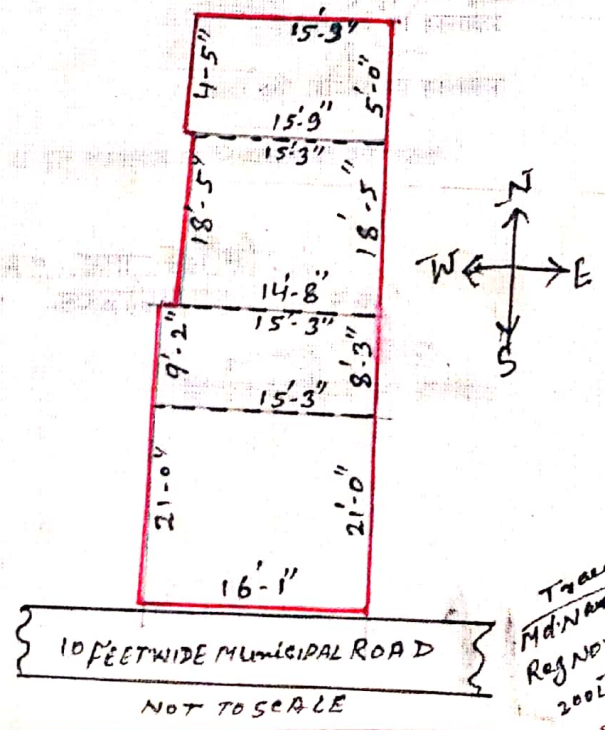 15'-9"
4-5"
5'-0"
15'-9"
15'-3"
18'-5"
18'-5"
N
W E
S
14'-8"
15'-3"
9'-2"
8'-3"
15'-3"
21'-0"
21'-0"
16'-1"
10 FEET WIDE MUNICIPAL ROAD
NOT TO SCALE
Md.
Reg No